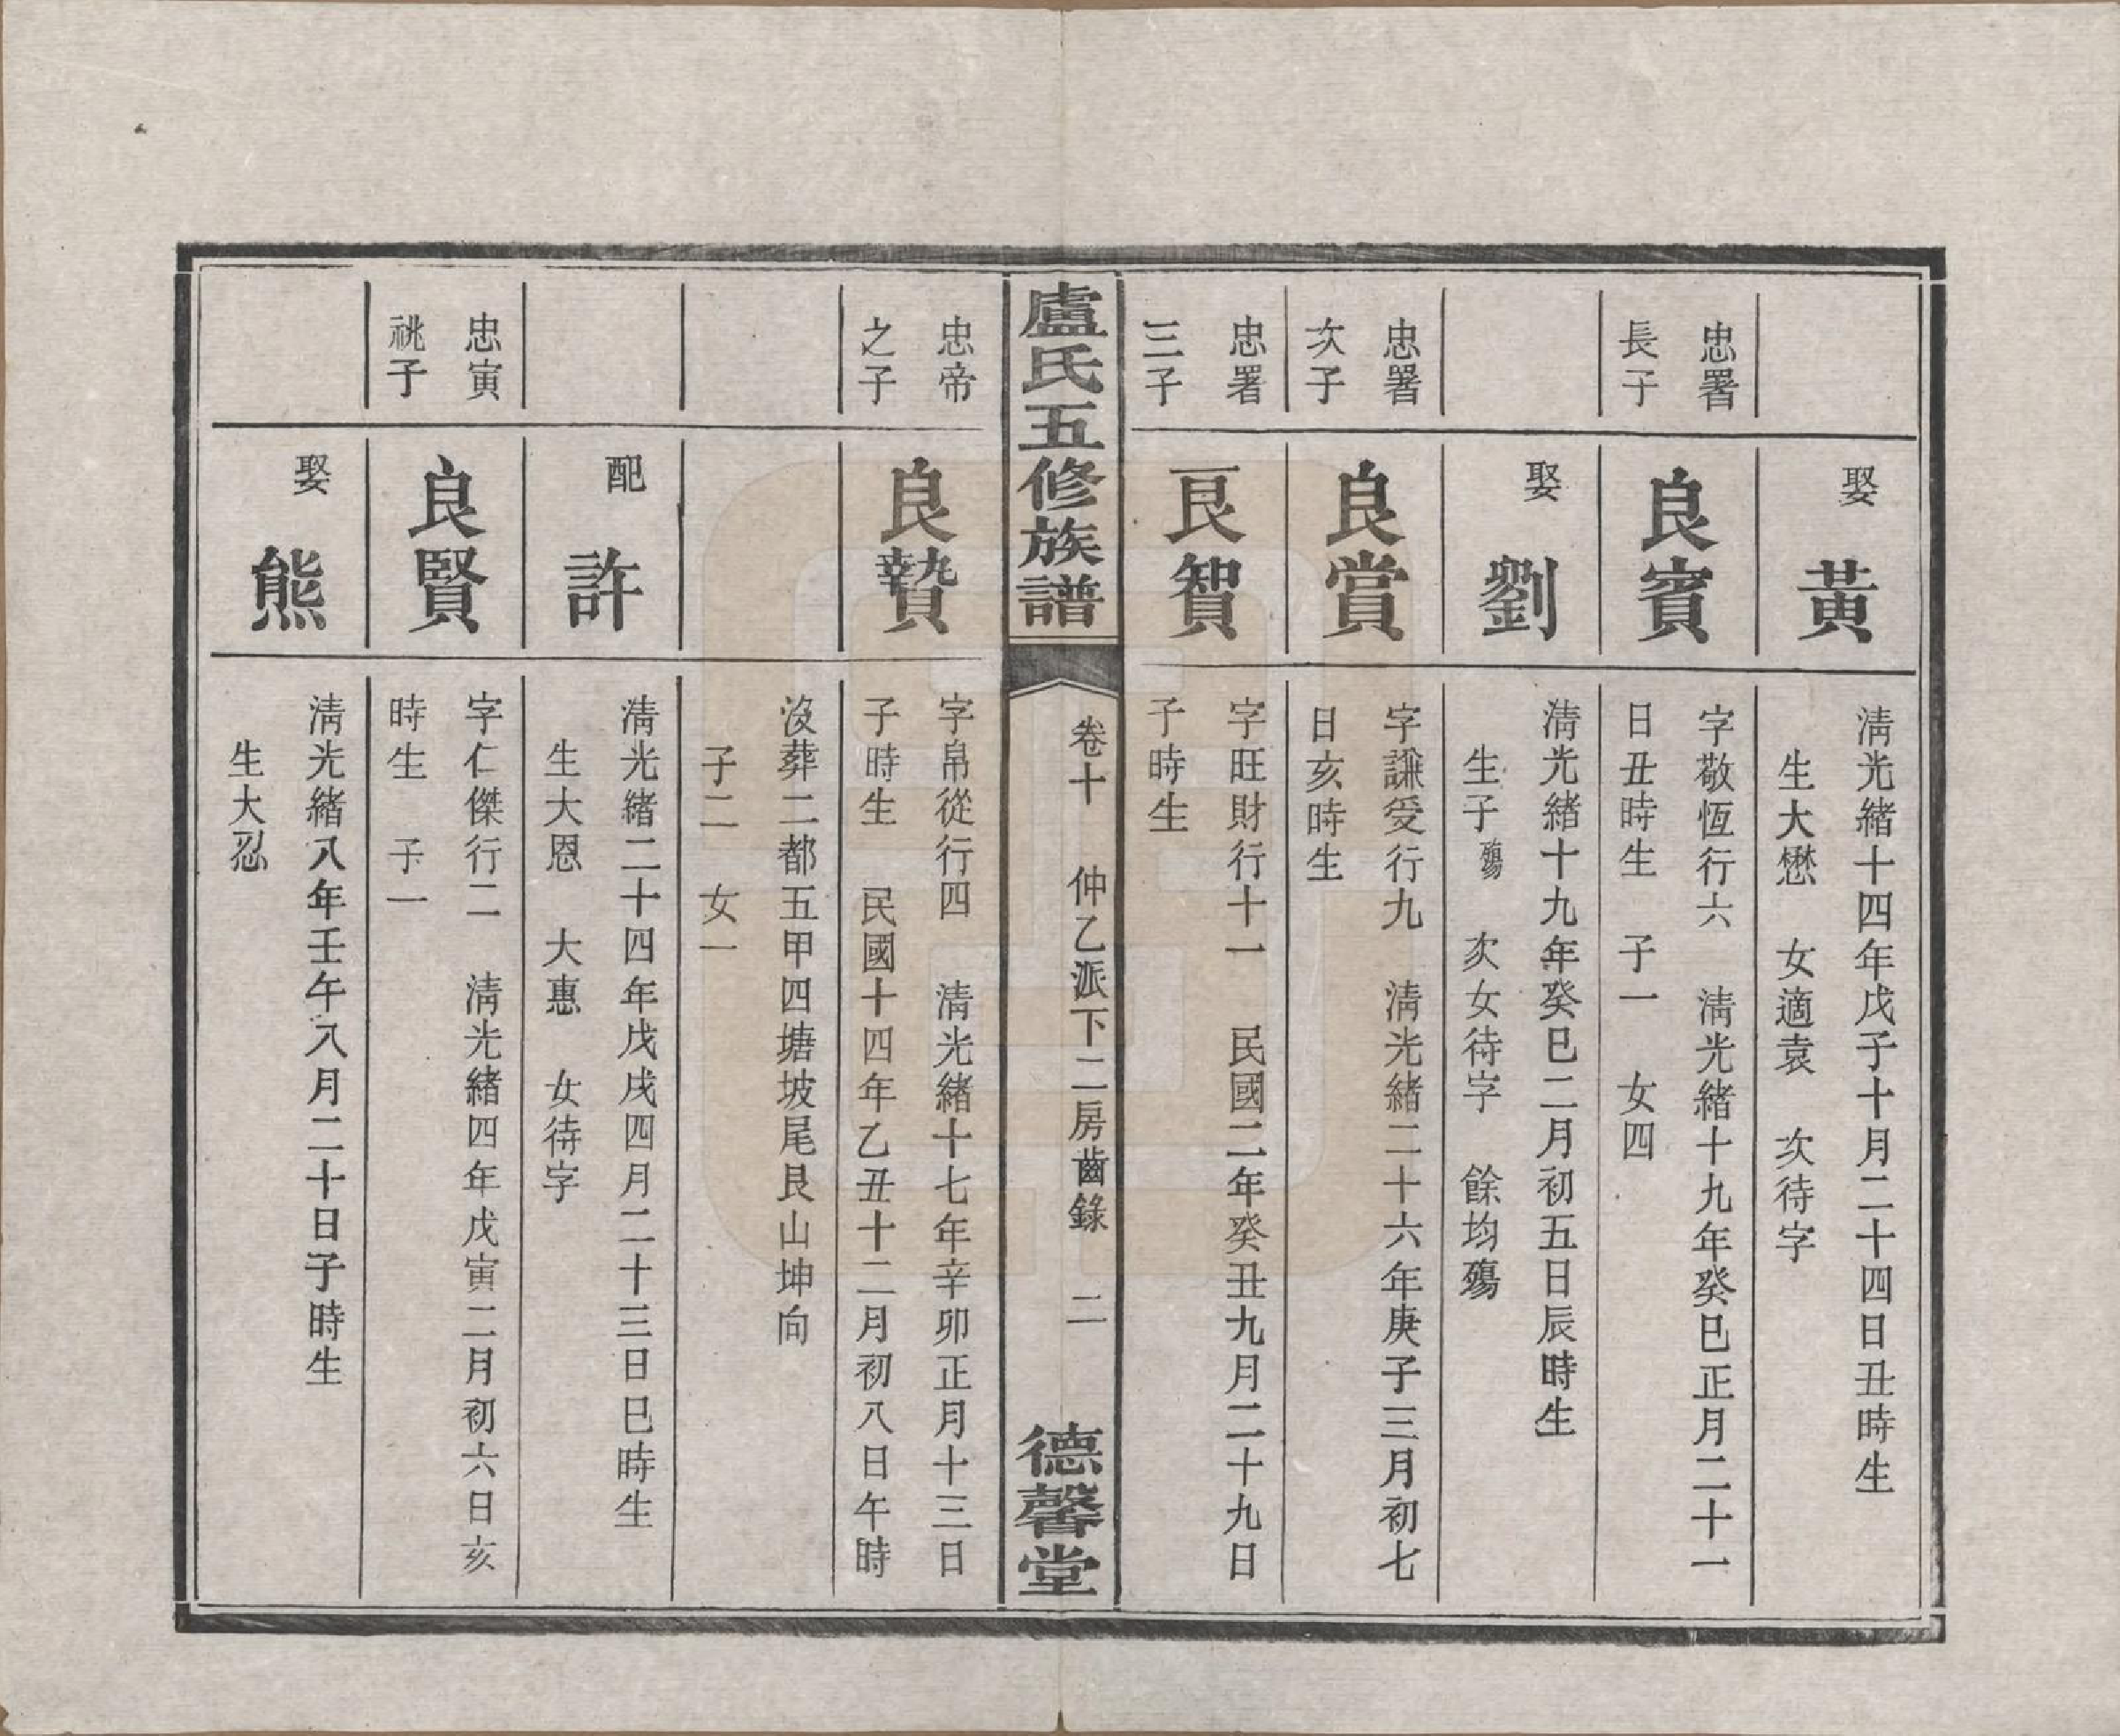 娶
黃
淸光緒十四年戊子十月二十四日丑時生
生大懋 女適袁 次待字
忠署
長子
良賓
字敬恆行六 淸光緒十九年癸巳正月二十一
日丑時生 子一 女四
娶
劉
淸光緒十九年癸巳二月初五日辰時生
生子殤 次女待字 餘均殤
忠署
次子
良賞
字謙受行九 淸光緒二十六年庚子三月初七
日亥時生
忠署
三子
良智
字旺財行十一 民國二年癸丑九月二十九日
子時生
盧氏五修族譜
卷十 仲乙派下二房齒錄 二
德馨堂
忠帝
之子
良贄
字帛從行四 淸光緒十七年辛卯正月十三日
子時生 民國十四年乙丑十二月初八日午時
沒葬二都五甲四塘坡尾艮山坤向
子二 女一
配
許
淸光緒二十四年戊戌四月二十三日巳時生
生大恩 大惠 女待字
忠寅
祧子
良賢
字仁傑行二 淸光緒四年戊寅二月初六日亥
時生 子一
娶
熊
淸光緒八年壬午八月二十日子時生
生大忍